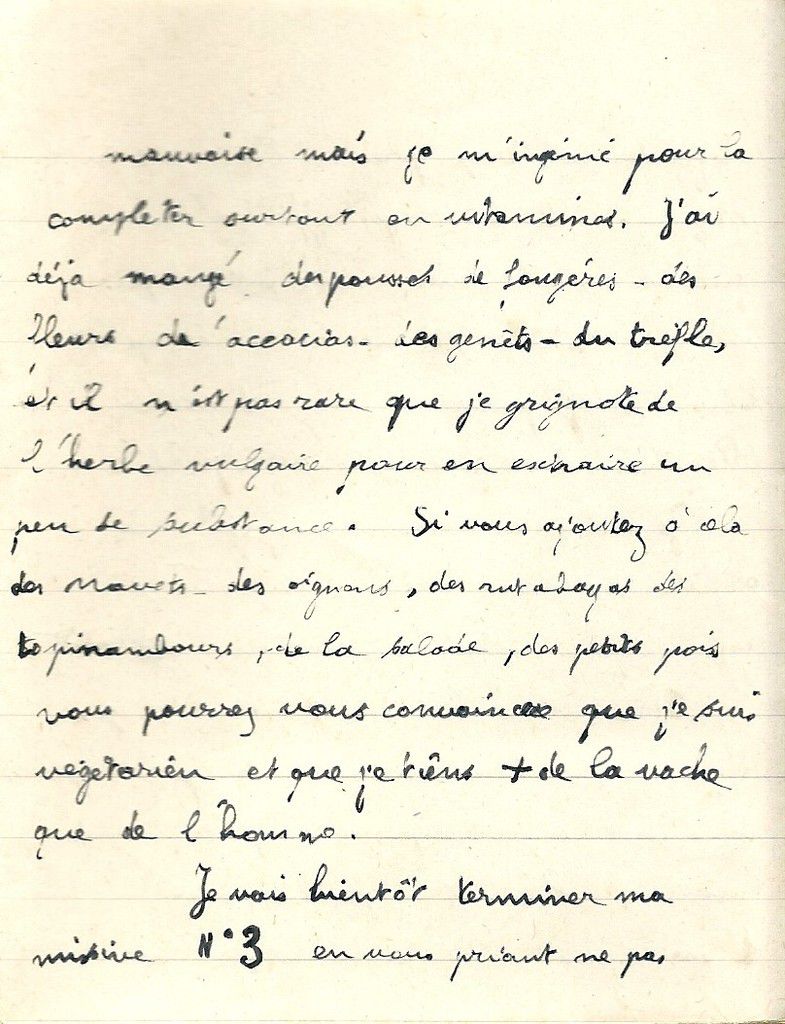 mauvaise mais je m'ingénie pour la
completer surtout en vitamines. J'ai
déjà mangé des pousses de fougères - des
fleurs de accacias - des genêts - du trèfle,
et il n'est pas rare que je grignote de
l'herbe vulgaire pour en extraire un
peu de substance. Si vous ajoutez à cela
des navets - des oignons, des rutabagas des
topinambours, de la salade, des petits pois
vous pourrez vous convaincre que je suis
vegetarien et que je tiens + de la vache
que de l'homme.
Je vais bientôt terminer ma
missive N° 3 en vous priant ne pas